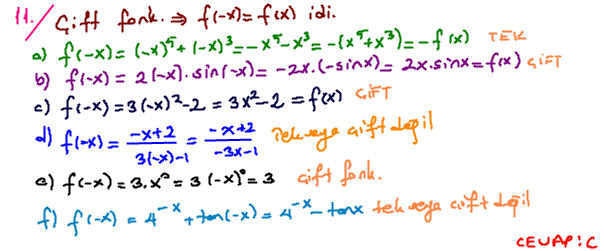 11. / Çift fonk. ⇒ f(-x)=f(x) idi.
a) f(-x)=(-x)⁵+(-x)³=-x⁵-x³=-(x⁵+x³)=-f(x) TEK
b) f(-x)=2(-x).sin(-x)=-2x.(-sinx)=2x.sinx=f(x) ÇİFT
c) f(-x)=3(-x)²-2=3x²-2=f(x) ÇİFT
d) f(-x)=(-x+2)/(3(-x)-1)=(-x+2)/(-3x-1) Tek veya çift değil
e) f(-x)=3.x⁰=3(-x)⁰=3 çift fonk.
f) f(-x)=4⁻ˣ+tan(-x)=4⁻ˣ-tanx tek veya çift değil
CEVAP:C